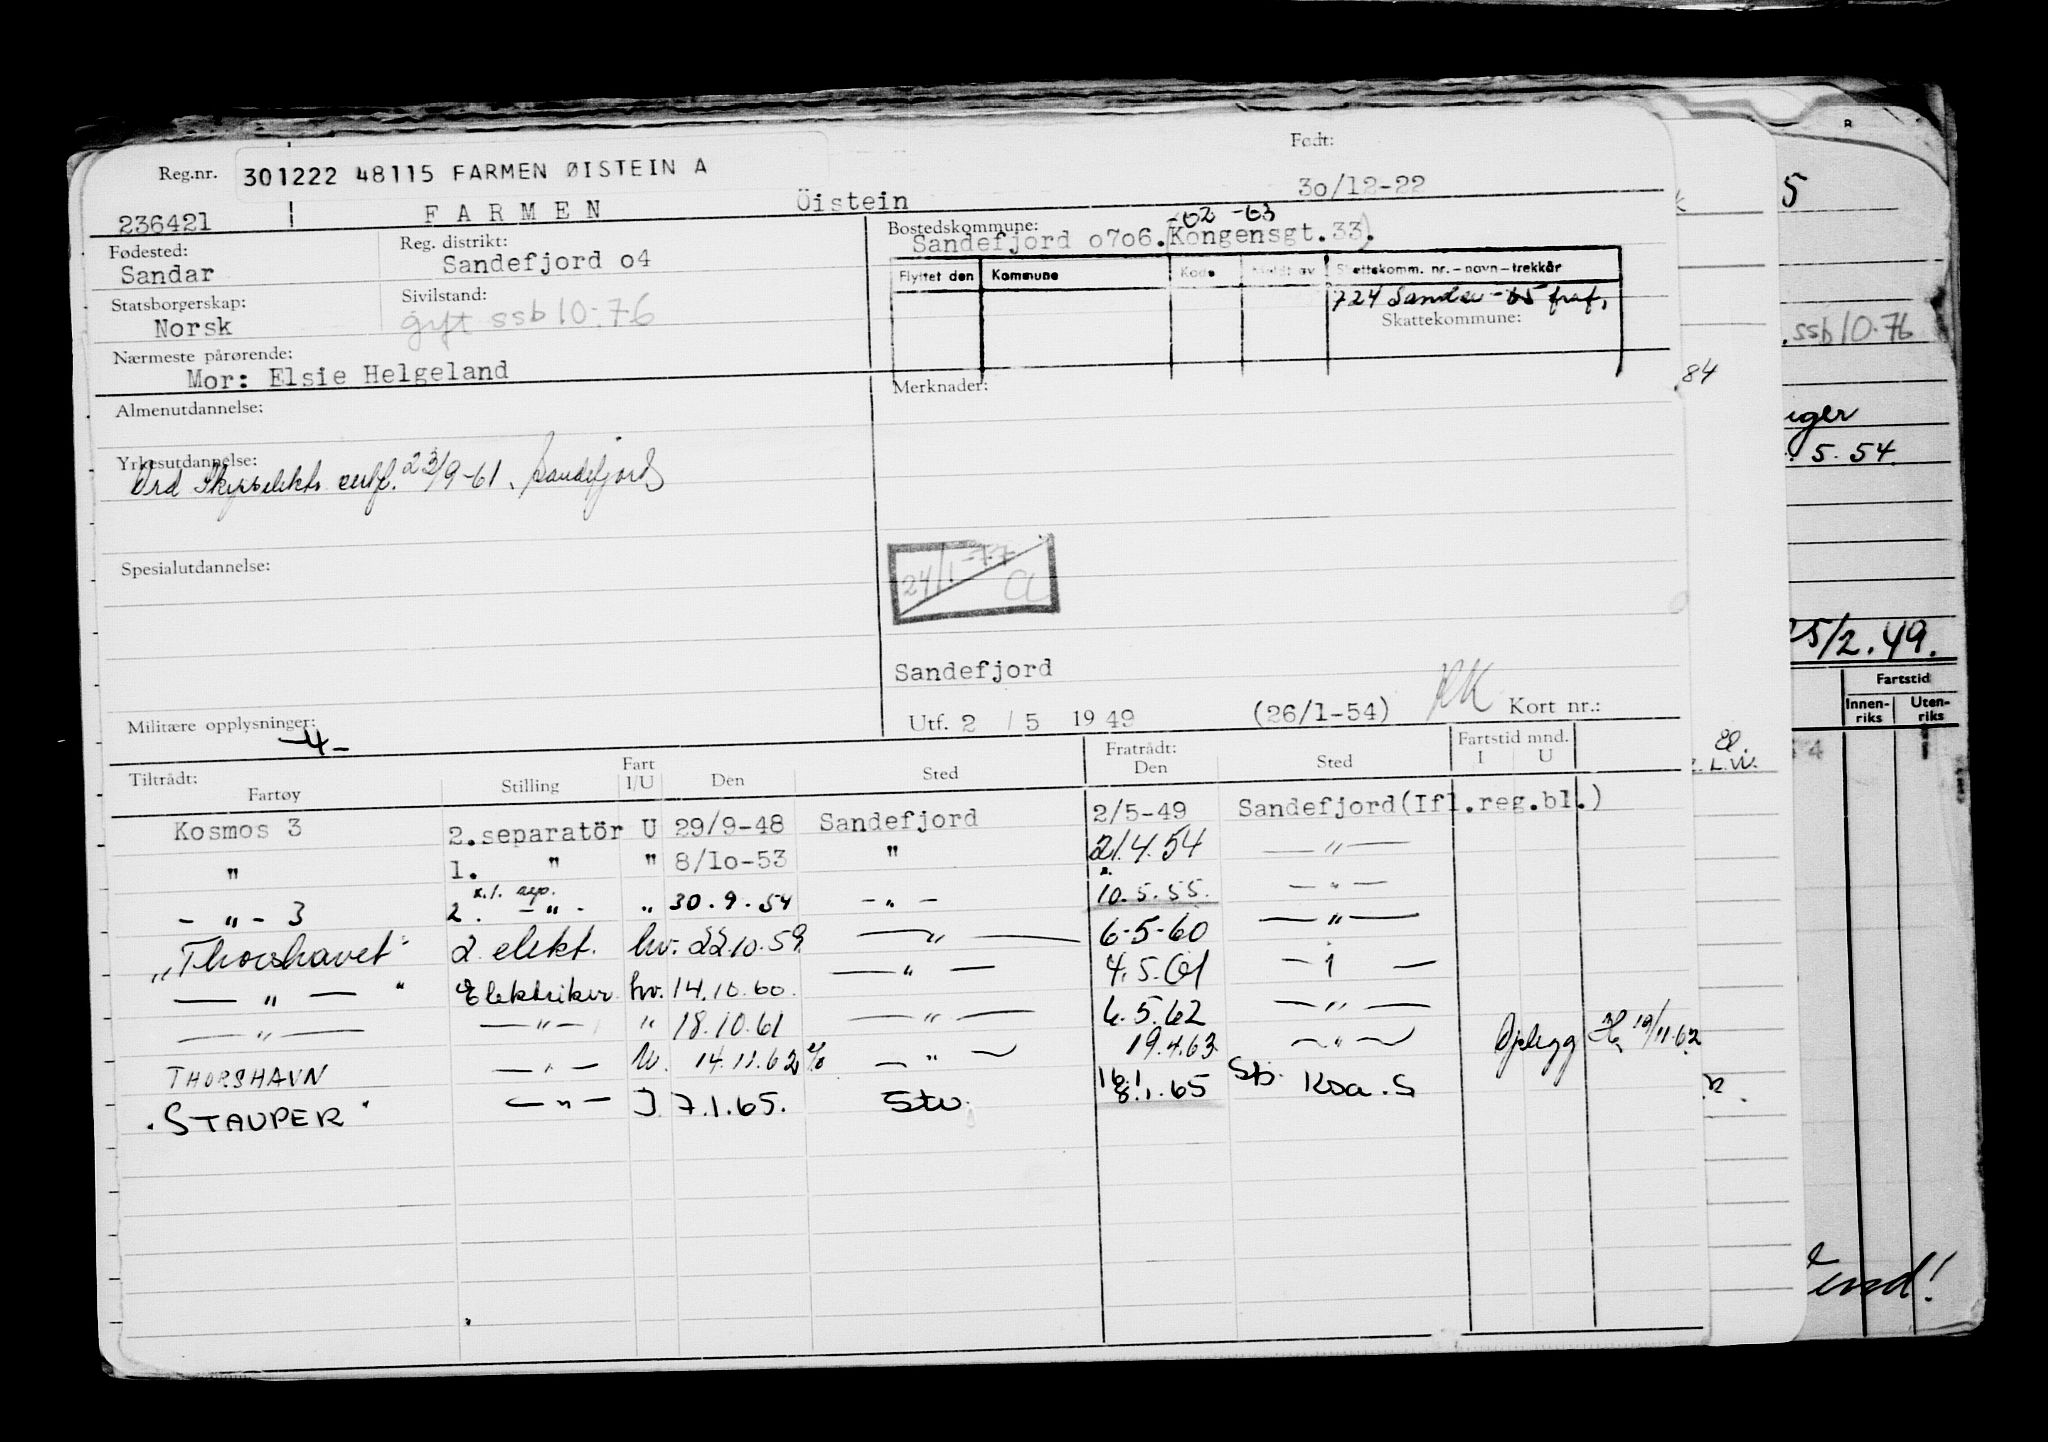 Reg.nr. 301222 48115 FARMEN ØISTEIN A
Født:
236421 FARMEN Öistein 3o/12-22
Fødested: Sandar
Reg. distrikt: Sandefjord o4
Bostedskommune: -62 -63
Sandefjord o7o6.(Kongensgt.33).
Flyttet den Kommune Kode Meldt av Skattekomm. nr.–navn–trekkår
724 Sandar -65 fraf.
Skattekommune:
Statsborgerskap: Norsk
Sivilstand: gift ssb 10.76
Nærmeste pårørende:
Mor: Elsie Helgeland
Merknader:
Almenutdannelse:
Yrkesutdannelse:
Ord Skipselektr. certf. 23/9-61, Sandefjord
Spesialutdannelse:
24/1-77 a
Sandefjord
Utf. 2 / 5 19 49 (26/1-54) Kort nr.:
Militære opplysninger:
-4-
Tiltrådt: Fratrådt: Fartstid mnd.
Fartøy Stilling Fart I/U Den Sted Den Sted I U
Kosmos 3 2.separatör U 29/9-48 Sandefjord 2/5-49 Sandefjord(Ifl.reg.bl.)
" 1. " " 8/1o-53 " 21.4.54 — " —
- " - 3 2. - " - " 30.9.54 - " - 10.5.55. — " —
"Thorshavet" 2 elekt. hv. 22.10.59 — " — 6-5-60 — " —
— " — " Elektriker hv. 14.10.60. — " — 4.5.61 — " —
— " — — " — " 18.10.61 — " — 6.5.62 — " —
THORSHAVN — " — 14.11.62 — " — 19.4.63. — " — 19/11.62
"STAUPER" — " — I 7.1.65. Stv. 18.1.65 Koa. S
5
ssb 10.76
84
5.54
25/2.49.
Fartstid
Innen-riks Uten-riks
El.
Vend!